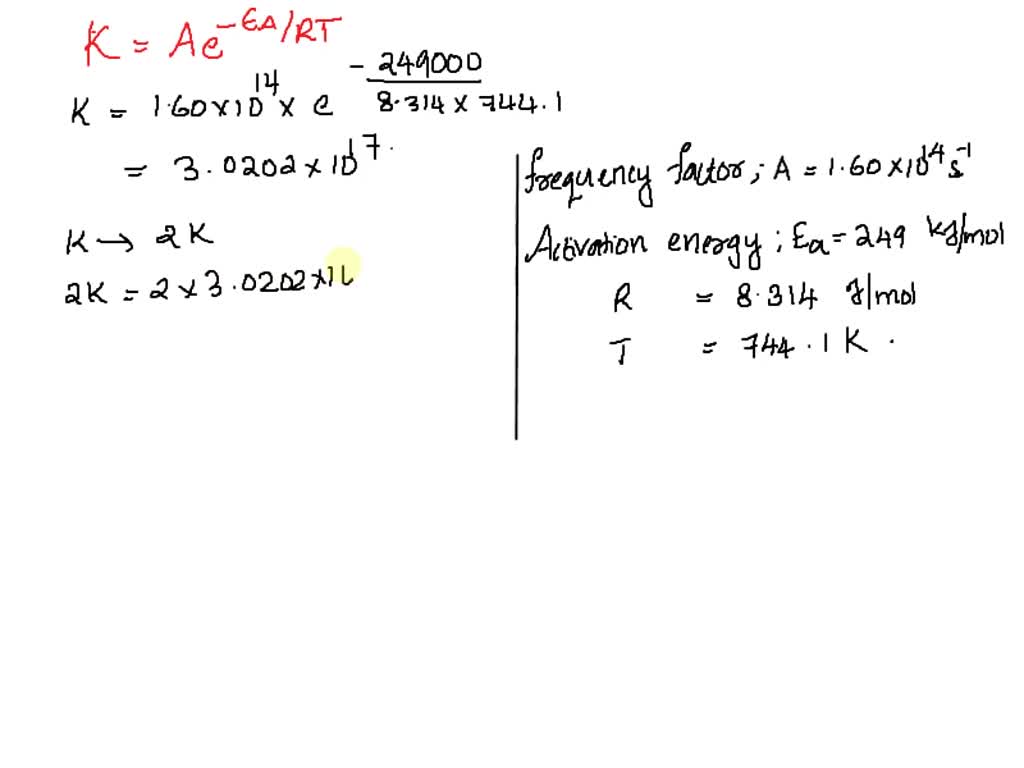 K = Ae^-EA/RT
K = 1.60×10^14 × e^-249000/8.314×744.1
= 3.0202×10^17.
K → 2K
2K = 2×3.0202×1
Frequency factor; A = 1.60×10^14 s^-1
Activation energy; Ea = 249 kJ/mol
R = 8.314 J/mol
T = 744.1 K.